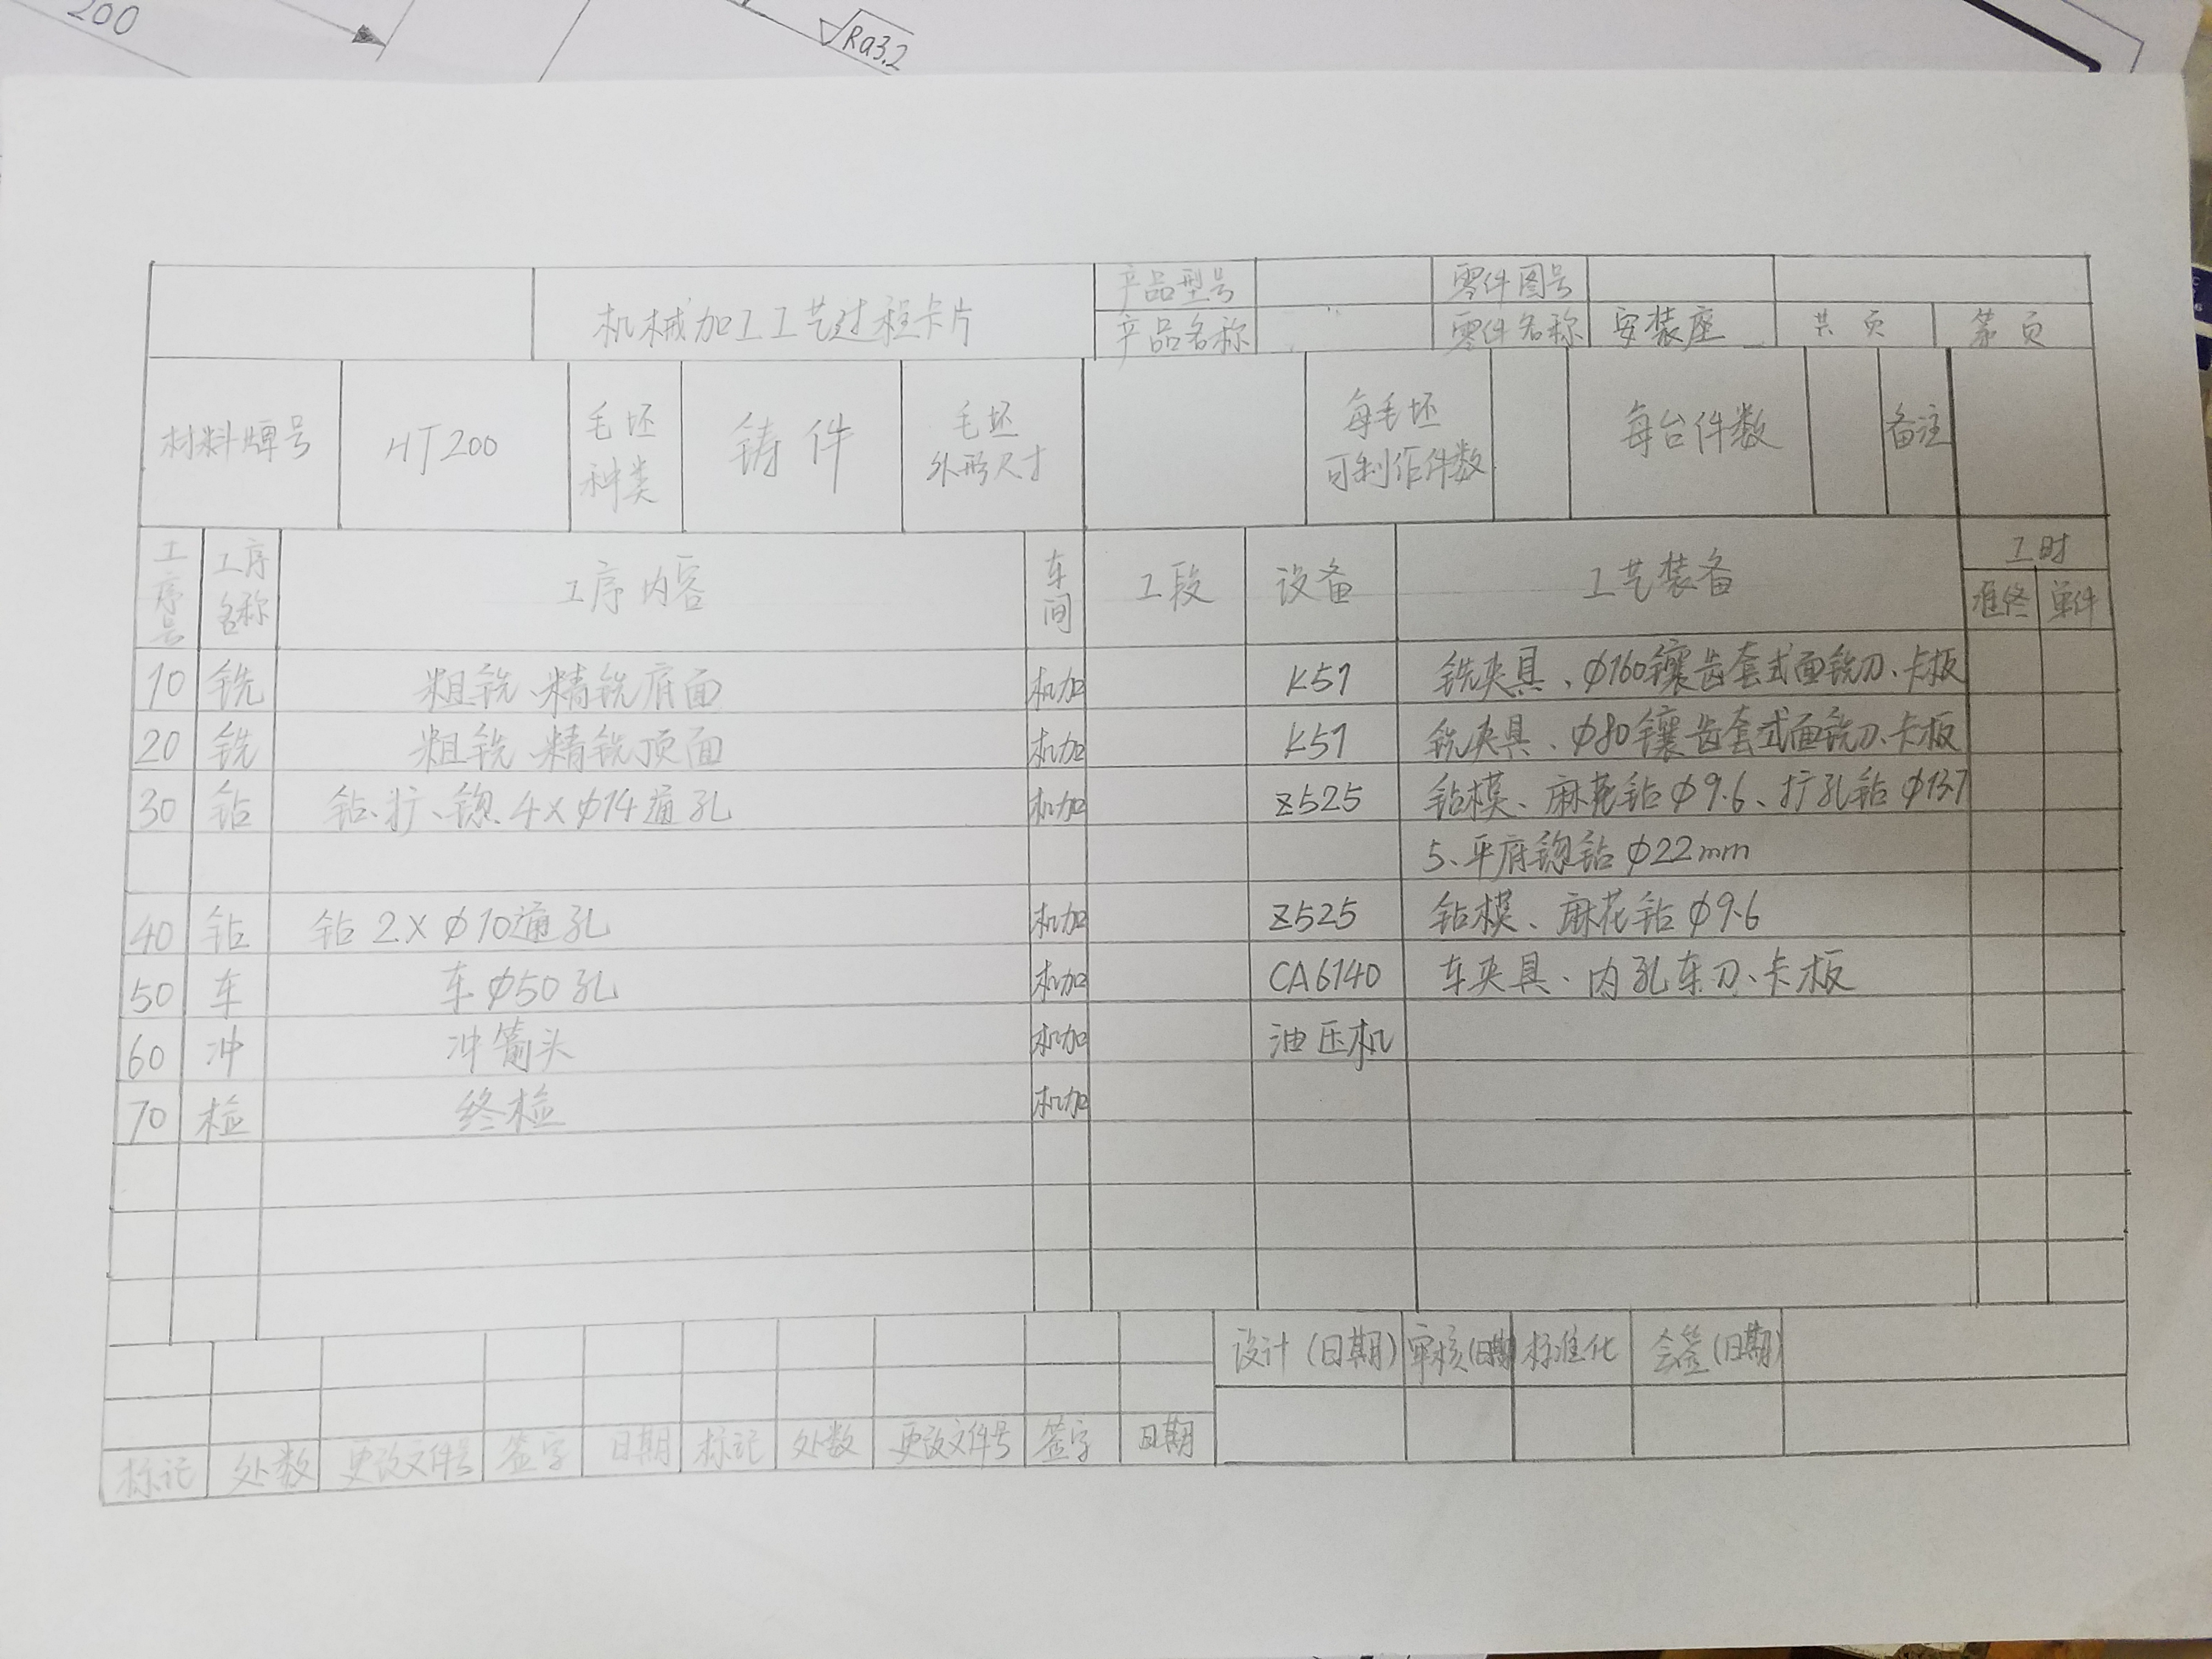 200
Ra3.2
机械加工工艺过程卡片 产品型号 零件图号
产品名称 零件名称 安装座 共 页 第 页
材料牌号 HT200 毛坯种类 铸件 毛坯外形尺寸 每毛坯可制作件数 每台件数 备注
工序号 工序名称 工序内容 车间 工段 设备 工艺装备 工时
准终 单件
10 铣 粗铣、精铣底面 机加 K51 铣夹具、φ160镶齿套式面铣刀、卡板
20 铣 粗铣、精铣顶面 机加 K51 铣夹具、φ80镶齿套式面铣刀、卡板
30 钻 钻、扩、锪 4×φ14通孔 机加 Z525 钻模、麻花钻φ9.6、扩孔钻φ13.7
5、平底锪钻φ22mm
40 钻 钻 2×φ10通孔 机加 Z525 钻模、麻花钻φ9.6
50 车 车φ50孔 机加 CA6140 车夹具、内孔车刀、卡板
60 冲 冲箭头 机加 油压机
70 检 终检 机加
设计(日期) 审核(日期) 标准化 会签(日期)
标记 处数 更改文件号 签字 日期 标记 处数 更改文件号 签字 日期